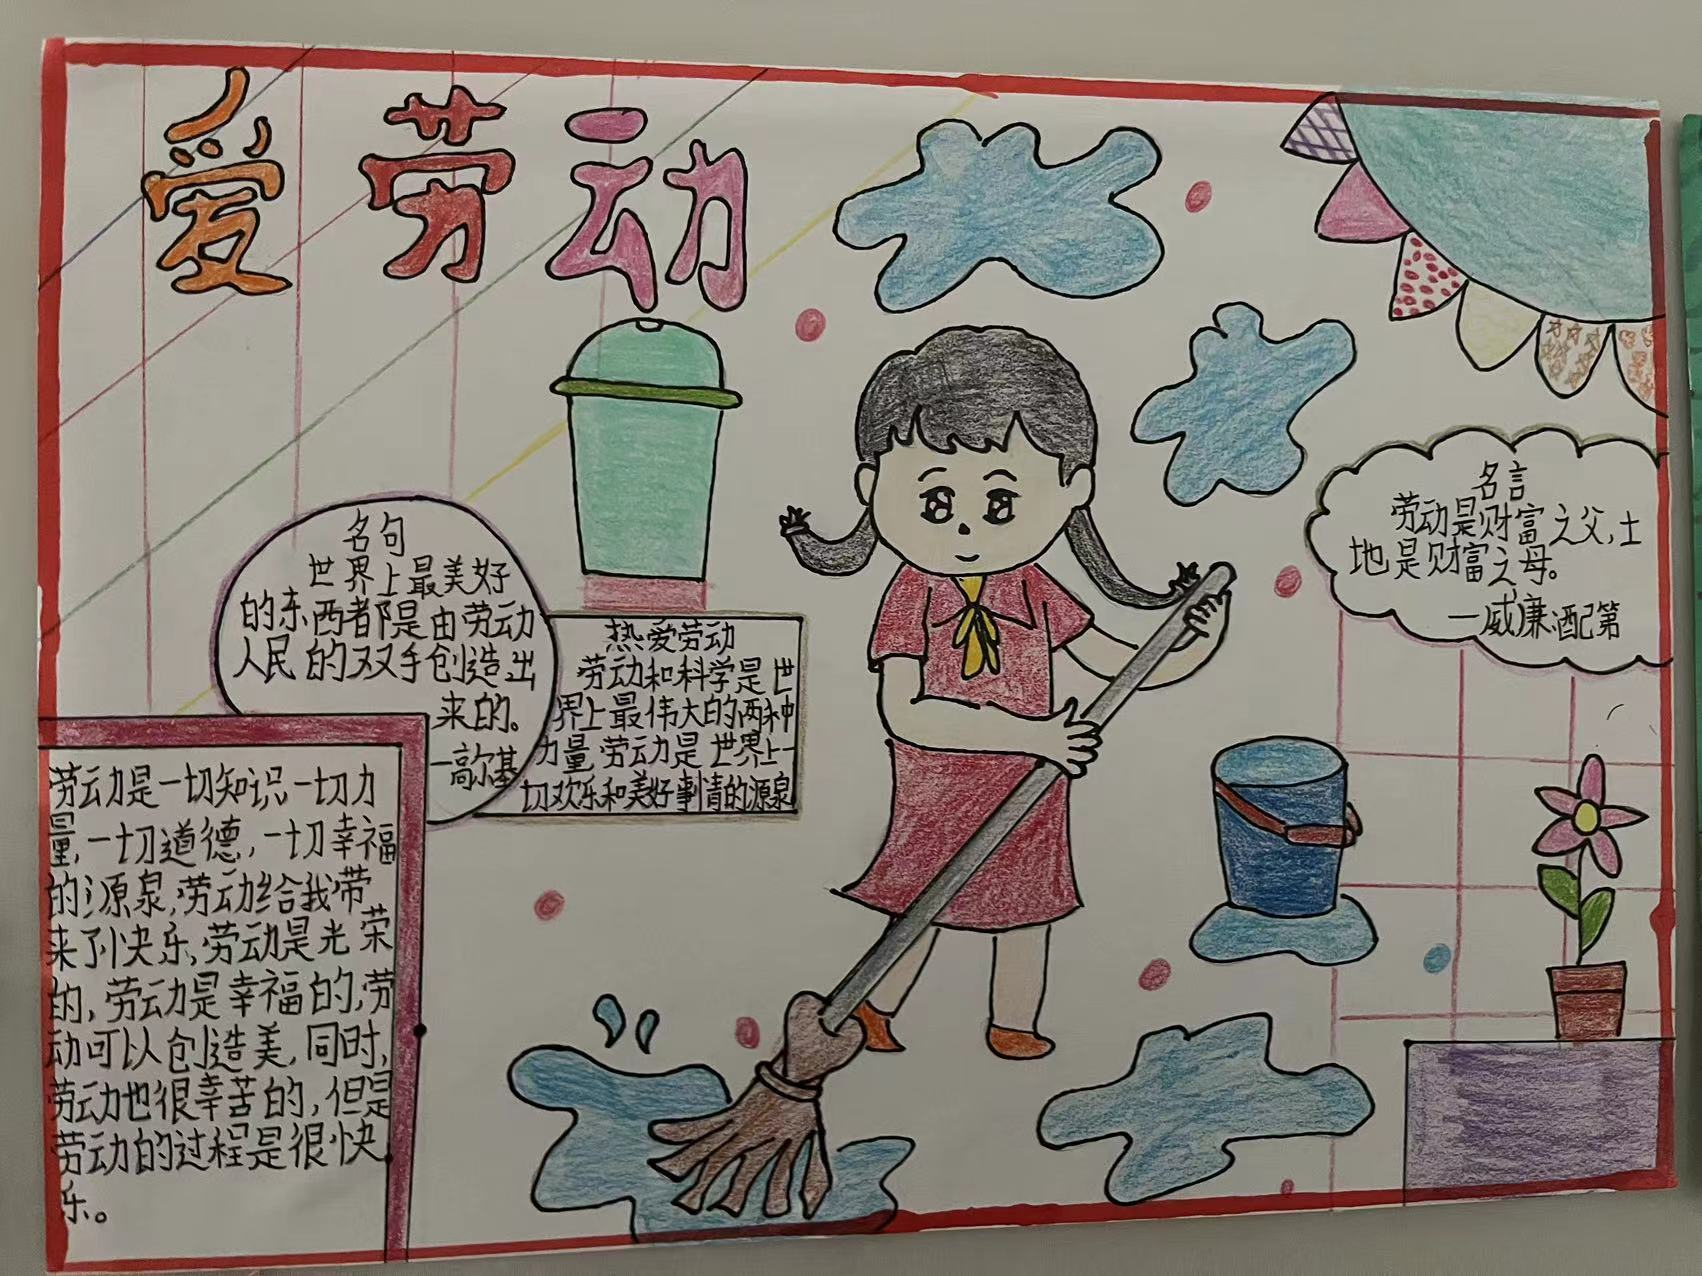 爱劳动
名句
世界上最美好
的东西都是由劳动
人民的双手创造出
来的。
一高尔基
热爱劳动
劳动和科学是世
界上最伟大的两种
力量,劳动是世界上一
切欢乐和美好事情的源泉
名言
劳动是财富之父,土
地是财富之母。
一威廉·配第
劳动是一切知识一切力
量,一切道德,一切幸福
的源泉,劳动给我带
来了快乐,劳动是光荣
的,劳动是幸福的,劳
动可以创造美,同时,
劳动也很辛苦的,但是
劳动的过程是很快
乐。